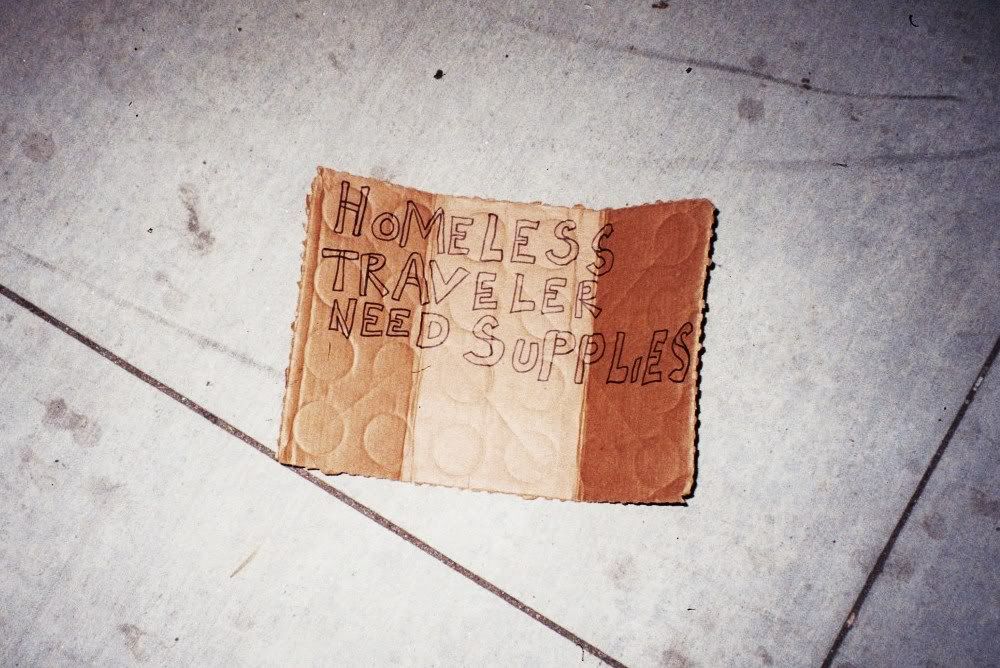 HoMELESS
TRAVELER
NEED SuPPLiES